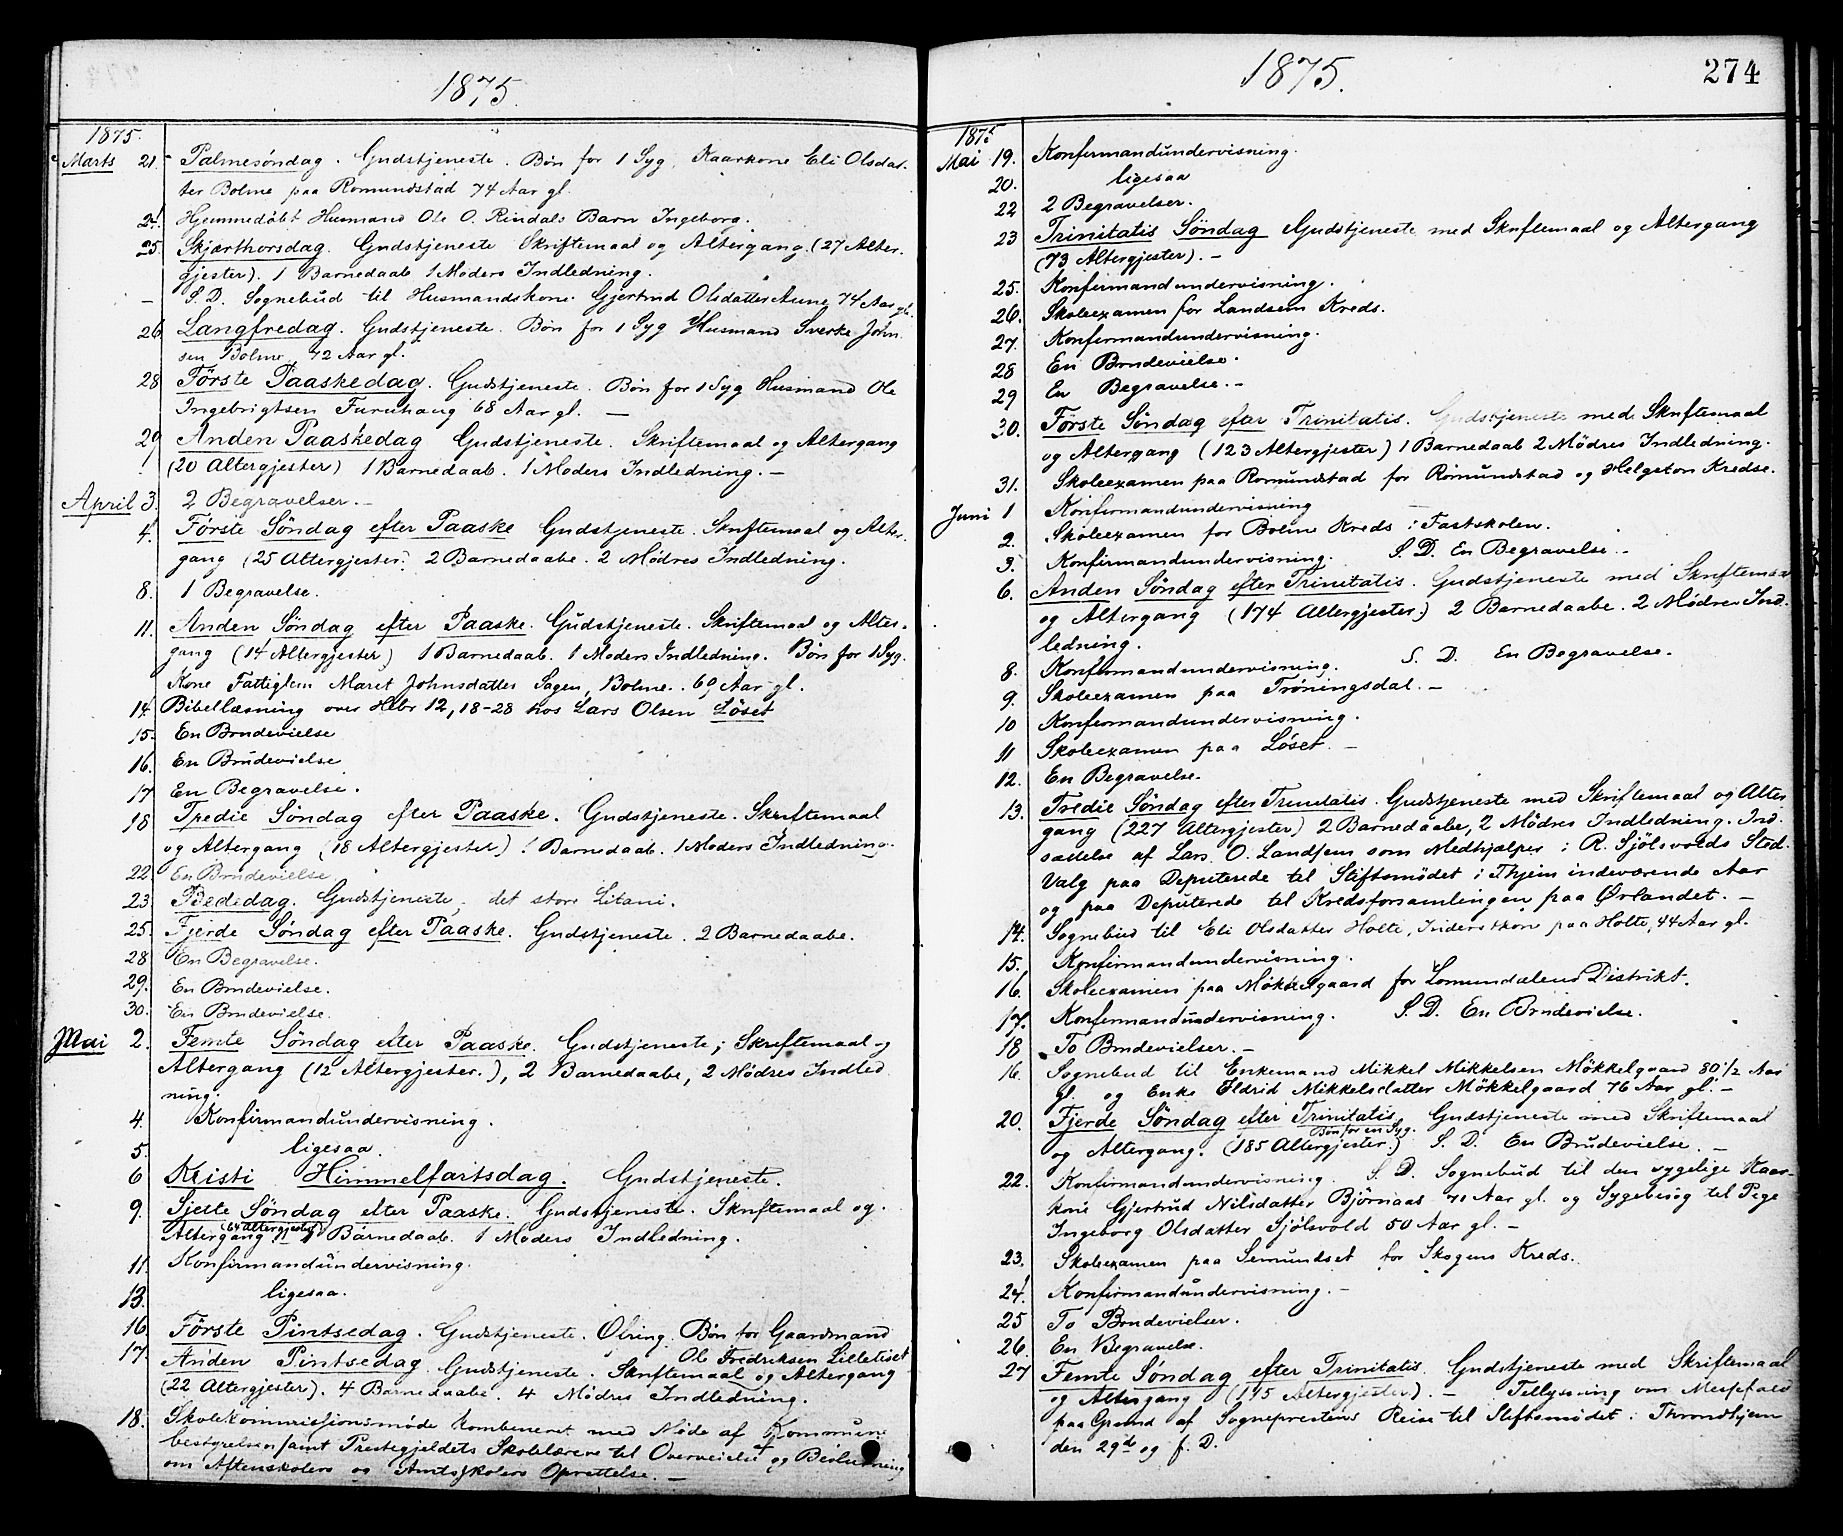 1875.
1875.
Marts 21. Palmesöndag. Gudstjeneste. Bön for 1 Syg, Kaarkone Eli Olsdat-
ter Bolme paa Romundstad 74 Aar gl.
24. Hjemmedöbt Husmand Ole O. Rindals Barn Ingeborg.
25. Skjærthorsdag. Gudstjeneste Skriftemaal og Altergang. (27 Alter-
gjester). 1 Barnedaab 1 Moders Indledning.
— S. D. Sognebud til Husmandskone Gjertrud Olsdatter Aune 74 Aar gl.
26. Langfredag. Gudstjeneste. Bön for 1 Syg Husmand Sverke John
sen Bolme 72 Aar gl.
28 Förste Paaskedag. Gudstjeneste. Bön for 1 Syg Husmand Ole
Ingebrigtsen Furuhaug 68 Aar gl. —
29 Anden Paaskedag Gudstjeneste. Skriftemaal og Altergang
(20 Altergjester) 1 Barnedaab. 1 Moders Indledning. —
April 3. 2 Begravelser. —
4. Förste Söndag efter Paaske Gudstjeneste. Skriftemaal og Alter-
gang (25 Altergjester. 2 Barnedaabe. 2 Mödres Indledning.
8. 1 Begravelse.
11. Anden Söndag efter Paaske. Gudstjeneste. Skriftemaal og Alter-
gang (14 Altergjester) 1 Barnedaab. 1 Moders Indledning. Bön for 1 Syg.
Kone Fattiglem Maret Johnsdatter Sagen, Bolme. 60 Aar gl.
14. Bibellæsning over Hebr 12, 18-28 hos Lars Olsen Löset
15. En Brudevielse
16. En Brudevielse
17 En Begravelse.
18 Tredie Söndag efter Paaske. Gudstjeneste. Skriftemaal
og Altergang (18 Altergjester) 1 Barnedaab. 1 Moders Indledning.
22. En Brudevielse
23. Bededag. Gudstjeneste, det store Litani.
25. Fjerde Söndag efter Paaske. Gudstjeneste. 2 Barnedaabe.
28 En Begravelse.
29. En Brudevielse.
30. En Brudevielse.
Mai 2. Femte Söndag efter Paaske. Gudstjeneste; Skriftemaal og
Altergang (12 Altergjester.), 2 Barnedaabe, 2 Mödres Indled
ning.
4. Konfirmandundervisning.
5. ligesaa.
6 Kristi Himmelfartsdag. Gudstjeneste.
9. Sjette Söndag efter Paaske. Gudstjeneste. Skriftemaal og.
(64 Altergjester)
Altergang 1 Barnedaab. 1 Moders Indledning.
11. Konfirmandundervisning.
13. ligesaa.
16. Förste Pintsedag. Gudstjeneste. Ofring. Bön for Gaardmand
Ole Fredriksen Lilletiset
17. Anden Pintsedag. Gudstjeneste. Skriftemaal og Altergang
(22 Altergjester). 4 Barnedaabe. 4 Mödres Indledning.
18. Skolekommissjonsmöde kombineret med Möde af Kommune
bestyrelsen samt Prestegjeldets Skolelærere til Overveielse og Beslutning
om Aftenskolers og Amtsskolers Oprettelse. —
1875.
274
1875
Mai 19. Konfirmandundervisning.
20. ligesaa
22 2 Begravelser.
23 Trinitatis Söndag Gudstjeneste med Skriftemaal og Altergang
(73 Altergjester). —
25. Konfirmandundervisning.
26. Skoleexamen for Landsem Kreds.
27. Konfirmandundervisning.
28 En Brudevielse.
29 En Begravelse. —
30. Förste Söndag efter Trinitatis. Gudstjeneste med Skriftemaal
og Altergang (123 Altergjester) 1 Barnedaab 2 Mödres Indledning.
31. Skoleexamen paa Romundstad for Romundstad og Helgeton Kredse.
Juni 1 Konfirmandundervisning
2. Skoleexamen for Bolme Kreds i Fastskolen.
3. Konfirmandundervisning. S. D. En Begravelse. —
6. Anden Söndag efter Trinitatis. Gudstjeneste med Skriftemaal
og Altergang (174 Altergjester) 2 Barnedaabe. 2 Mödres Ind-
ledning.
8. Konfirmandundervisning. S. D. En Begravelse.
9. Skoleexamen paa Tröningsdal. —
10 Konfirmandundervisning.
11 Skoleexamen paa Löset. —
12. En Begravelse.
13. Tredie Söndag efter Trinitatis. Gudstjeneste med Skriftemaal og Alter
gang (227 Altergjester) 2 Barnedaabe, 2 Mödres Indledning. Ind-
sættelse af Lars O. Landsem som Medhjælper i R. Sjölsvolds Sted.
Valg paa Deputerede til Stiftsmödet i Thjem indeværende Aar
og paa Deputerede til Kredsforsamlingen paa Ørlandet. —
14. Sognebud til Eli Olsdatter Holte, Inderstkone paa Holte, 44 Aar gl.
15. Konfirmandundervisning.
16. Skoleexamen paa Mökkelgaard for Lomundalens Distrikt.
17. Konfirmandundervisning. S. D. En Brudevielse.
18 To Brudevielser. —
16. Sognebud til Enkemand Mikkel Mikkelsen Mökkelgaard 80 1/2 Aar
gl. og Enke Eldrid Mikkelsdatter Mökkelgaard 76 Aar gl. —
20. Fjerde Söndag efter Trinitatis. Gudstjeneste med Skriftemaal
Bön for en Syg.
og Altergang. (185 Altergjester) S. D. En Brudevielse. —
22. Konfirmandundervisning. S. D. Sognebud til den sygelige Kaar-
kone Gjertrud Nilsdatter Björnaas 71 Aar gl. og Sygebesög til Pige
Ingeborg Olsdatter Sjölsvold 50 Aar gl. —
23. Skoleexamen paa Semundset for Skogens Kreds.
24. Konfirmandundervisning. —
25 To Brudevielser.
26. En Begravelse.
27 Femte Söndag efter Trinitatis. Gudstjeneste med Skriftemaal
og Altergang (115 Altergjester). — Tillysning om Messefald
paa Grund af Sogneprestens Reise til Stiftsmödet i Throndhjem
den 29de og f. D.